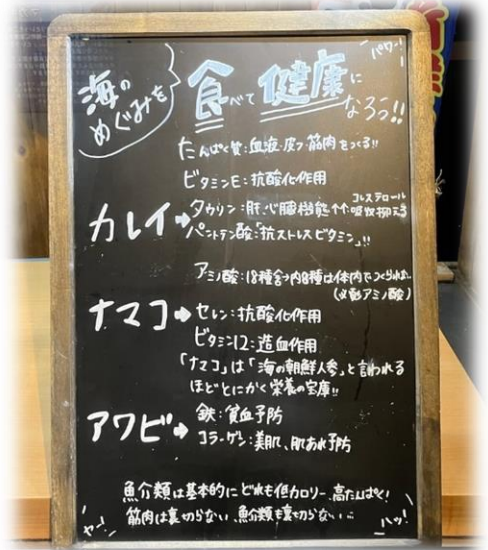 海の
めぐみを
食べて健康に
なろう!!
パワー!
たんぱく質:血液・皮フ・筋肉をつくる!!
ビタミンE:抗酸化作用
カレイ→
タウリン:肝、心臓機能↑↑ コレステロール吸収抑える
パントテン酸:「抗ストレスビタミン」!!
アミノ酸:18種含→内8種は体内でつくられない
(必須アミノ酸)
ナマコ→
セレン:抗酸化作用
ビタミン12:造血作用
「ナマコ」は「海の朝鮮人参」と言われる
ほどとにかく栄養の宝庫!!
アワビ→
鉄:貧血予防
コラーゲン:美肌、肌あれ予防
魚介類は基本的にどれも低カロリー、高たんぱく!
筋肉は裏切らない、魚介類も裏切らない…
ヤー!
ハッ!